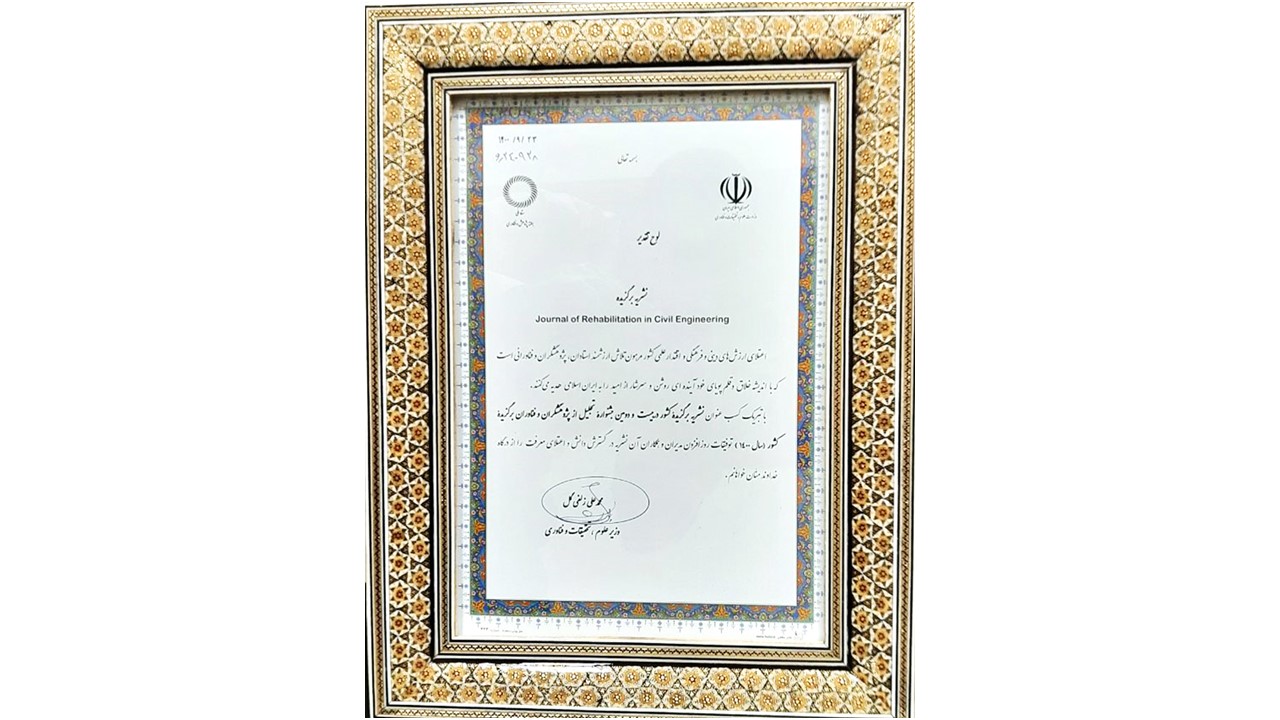 ۱۴۰۰/۹/۲۳
بسمه تعالی
جمهوری اسلامی ایران
وزارت علوم، تحقیقات و فناوری
لوح تقدیر
نشریه برگزیده
Journal of Rehabilitation in Civil Engineering
اعتلای ارزش‌های دینی و فرهنگی و اقتدار علمی کشور مرهون تلاش ارزشمند استادان، پژوهشگران و فناورانی است
که با اندیشه خلاق و قلم پویای خود آینده ای روشن و سرشار از امید را به ایران اسلامی هدیه می‌کنند.
با تبریک کسب عنوان نشریه برگزیدهٔ کشور در بیست و دومین جشنوارهٔ تجلیل از پژوهشگران و فناوران برگزیدهٔ
کشور (سال ۱۴۰۰) توفیقات روزافزون مدیران و همکاران آن نشریه در گسترش دانش و اعتلای معرفت را از درگاه
خداوند منان خواهانم.
محمدعلی زلفی گل
وزیر علوم، تحقیقات و فناوری